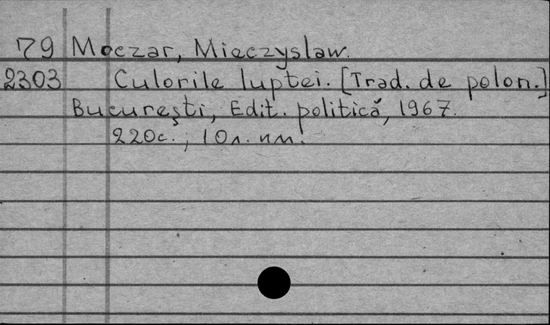 79 Moczar, Mieczyslaw.
2303 Culorile luptei. [Trad. de polon.]
București, Edit. politică, 1967.
220с.; 10л. ил.